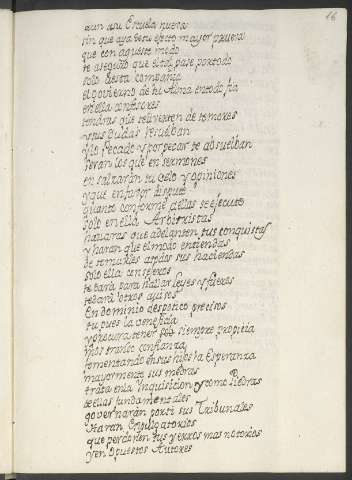 16
aun asu Escuela nueva
sin que aya desu efecto mayor prueva
que con aqueste modo
te aseguro que el tal pase por todo
solo desta compañia
el govierno de tu Alma en todo fia
en ella confesores
tendras que te liverten de temores
y tus Duldas resuelban
y lo Pecado y por pecar te absuelban
seran los que en sermones
en salzaran tu celo y opiniones
y que en furor disputo
quanto conforme a ellas se ejecuto
solo en ella Arbitristas
hallaras que adelanten tus conquistas
y haran que el modo entiendas
de tomarles a todos sus haciendas
solo ella consejos
te dara para hallar leyes y fueros
te dara otros avisos
En dominio despotico precisos
tu pues la
y procura tener siempre propicia
y mas franco confianza
fomentando en sus hijos la Esperanza
mayormente sus medras
trata en la Inquisicion y como Piedras
de ellas fundamentales
governarán por ti sus Tribunales
Haran Expurgatorios
que perdonen tus yerros mas notorios
y en opuestos Autores